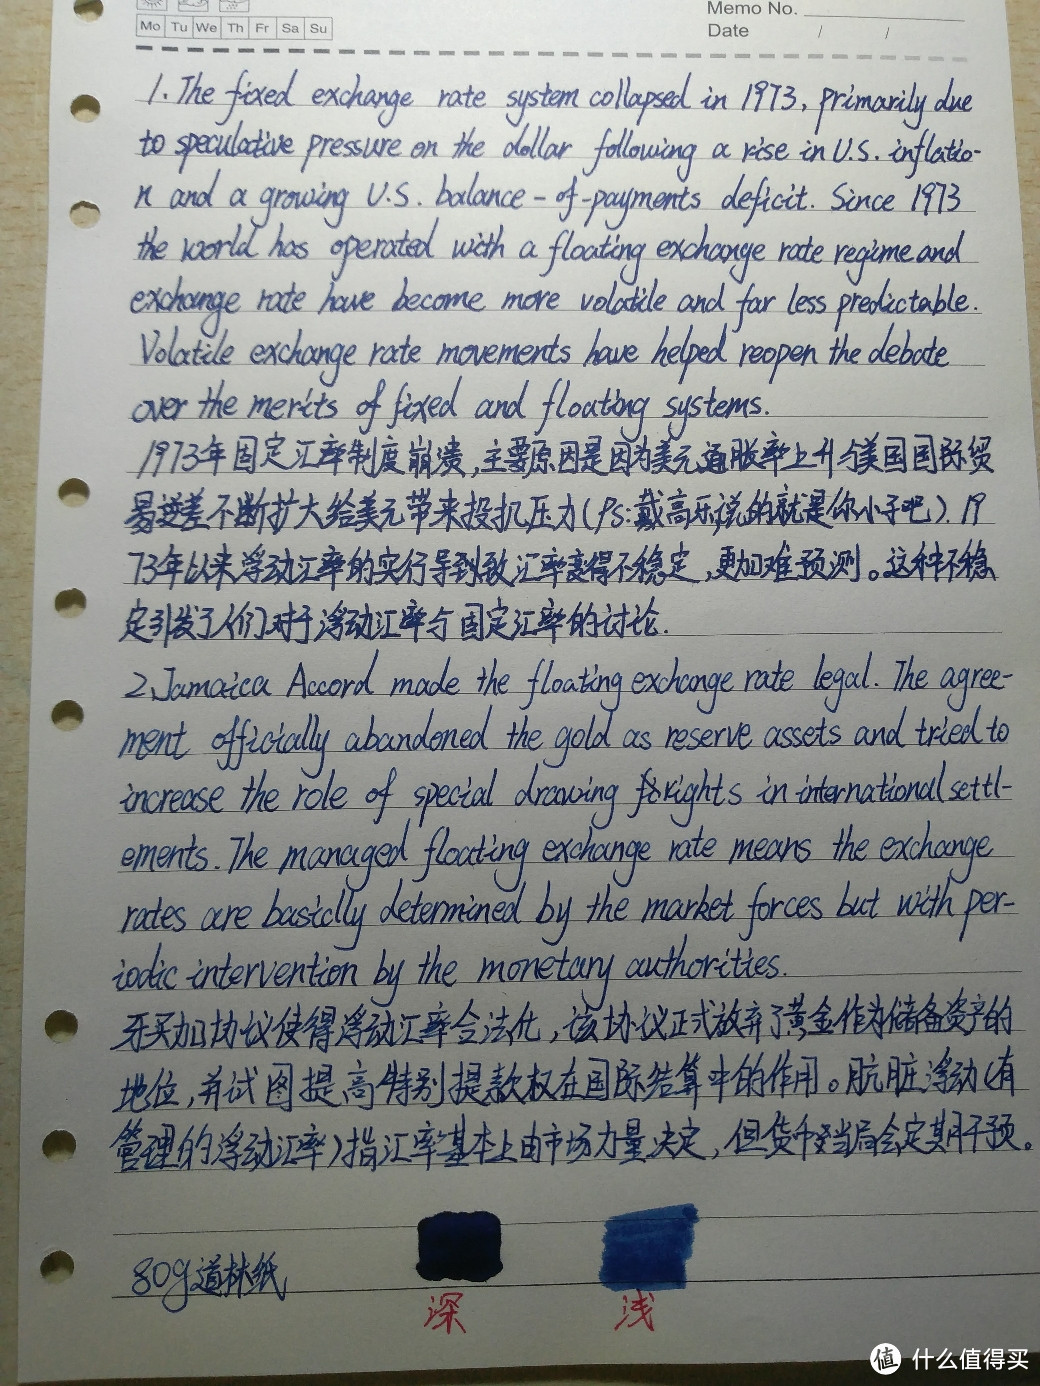 Memo No.
Mo Tu We Th Fr Sa Su
Date / /
1. The fixed exchange rate system collapsed in 1973, primarily due
to speculative pressure on the dollar following a rise in U.S. inflatio-
n and a growing U.S. balance-of-payments deficit. Since 1973
the world has operated with a floating exchange rate regime and
exchange rate have become more volatile and far less predictable.
Volatile exchange rate movements have helped reopen the debate
over the merits of fixed and floating systems.
1973年固定汇率制度崩溃,主要原因是因为美元通胀率上升与美国国际贸
易逆差不断扩大给美元带来投机压力(PS:戴高乐说的就是你小子吧).19
73年以来浮动汇率的实行导致汇率变得不稳定,更加难预测。这种不稳
定引发了人们对于浮动汇率与固定汇率的讨论.
2.Jamaica Accord made the floating exchange rate legal. The agree-
ment officially abandoned the gold as reserve assets and tried to
increase the role of special drawing rights in international settl-
ements. The managed floating exchange rate means the exchange
rates are basiclly determined by the market forces but with per-
iodic intervention by the monetary authorities.
牙买加协议使得浮动汇率合法化,该协议正式放弃了黄金作为储备资产的
地位,并试图提高特别提款权在国际结算中的作用。肮脏浮动(有
管理的浮动汇率)指汇率基本上由市场力量决定,但货币当局会定期干预。
80g道林纸
深 浅
值 什么值得买